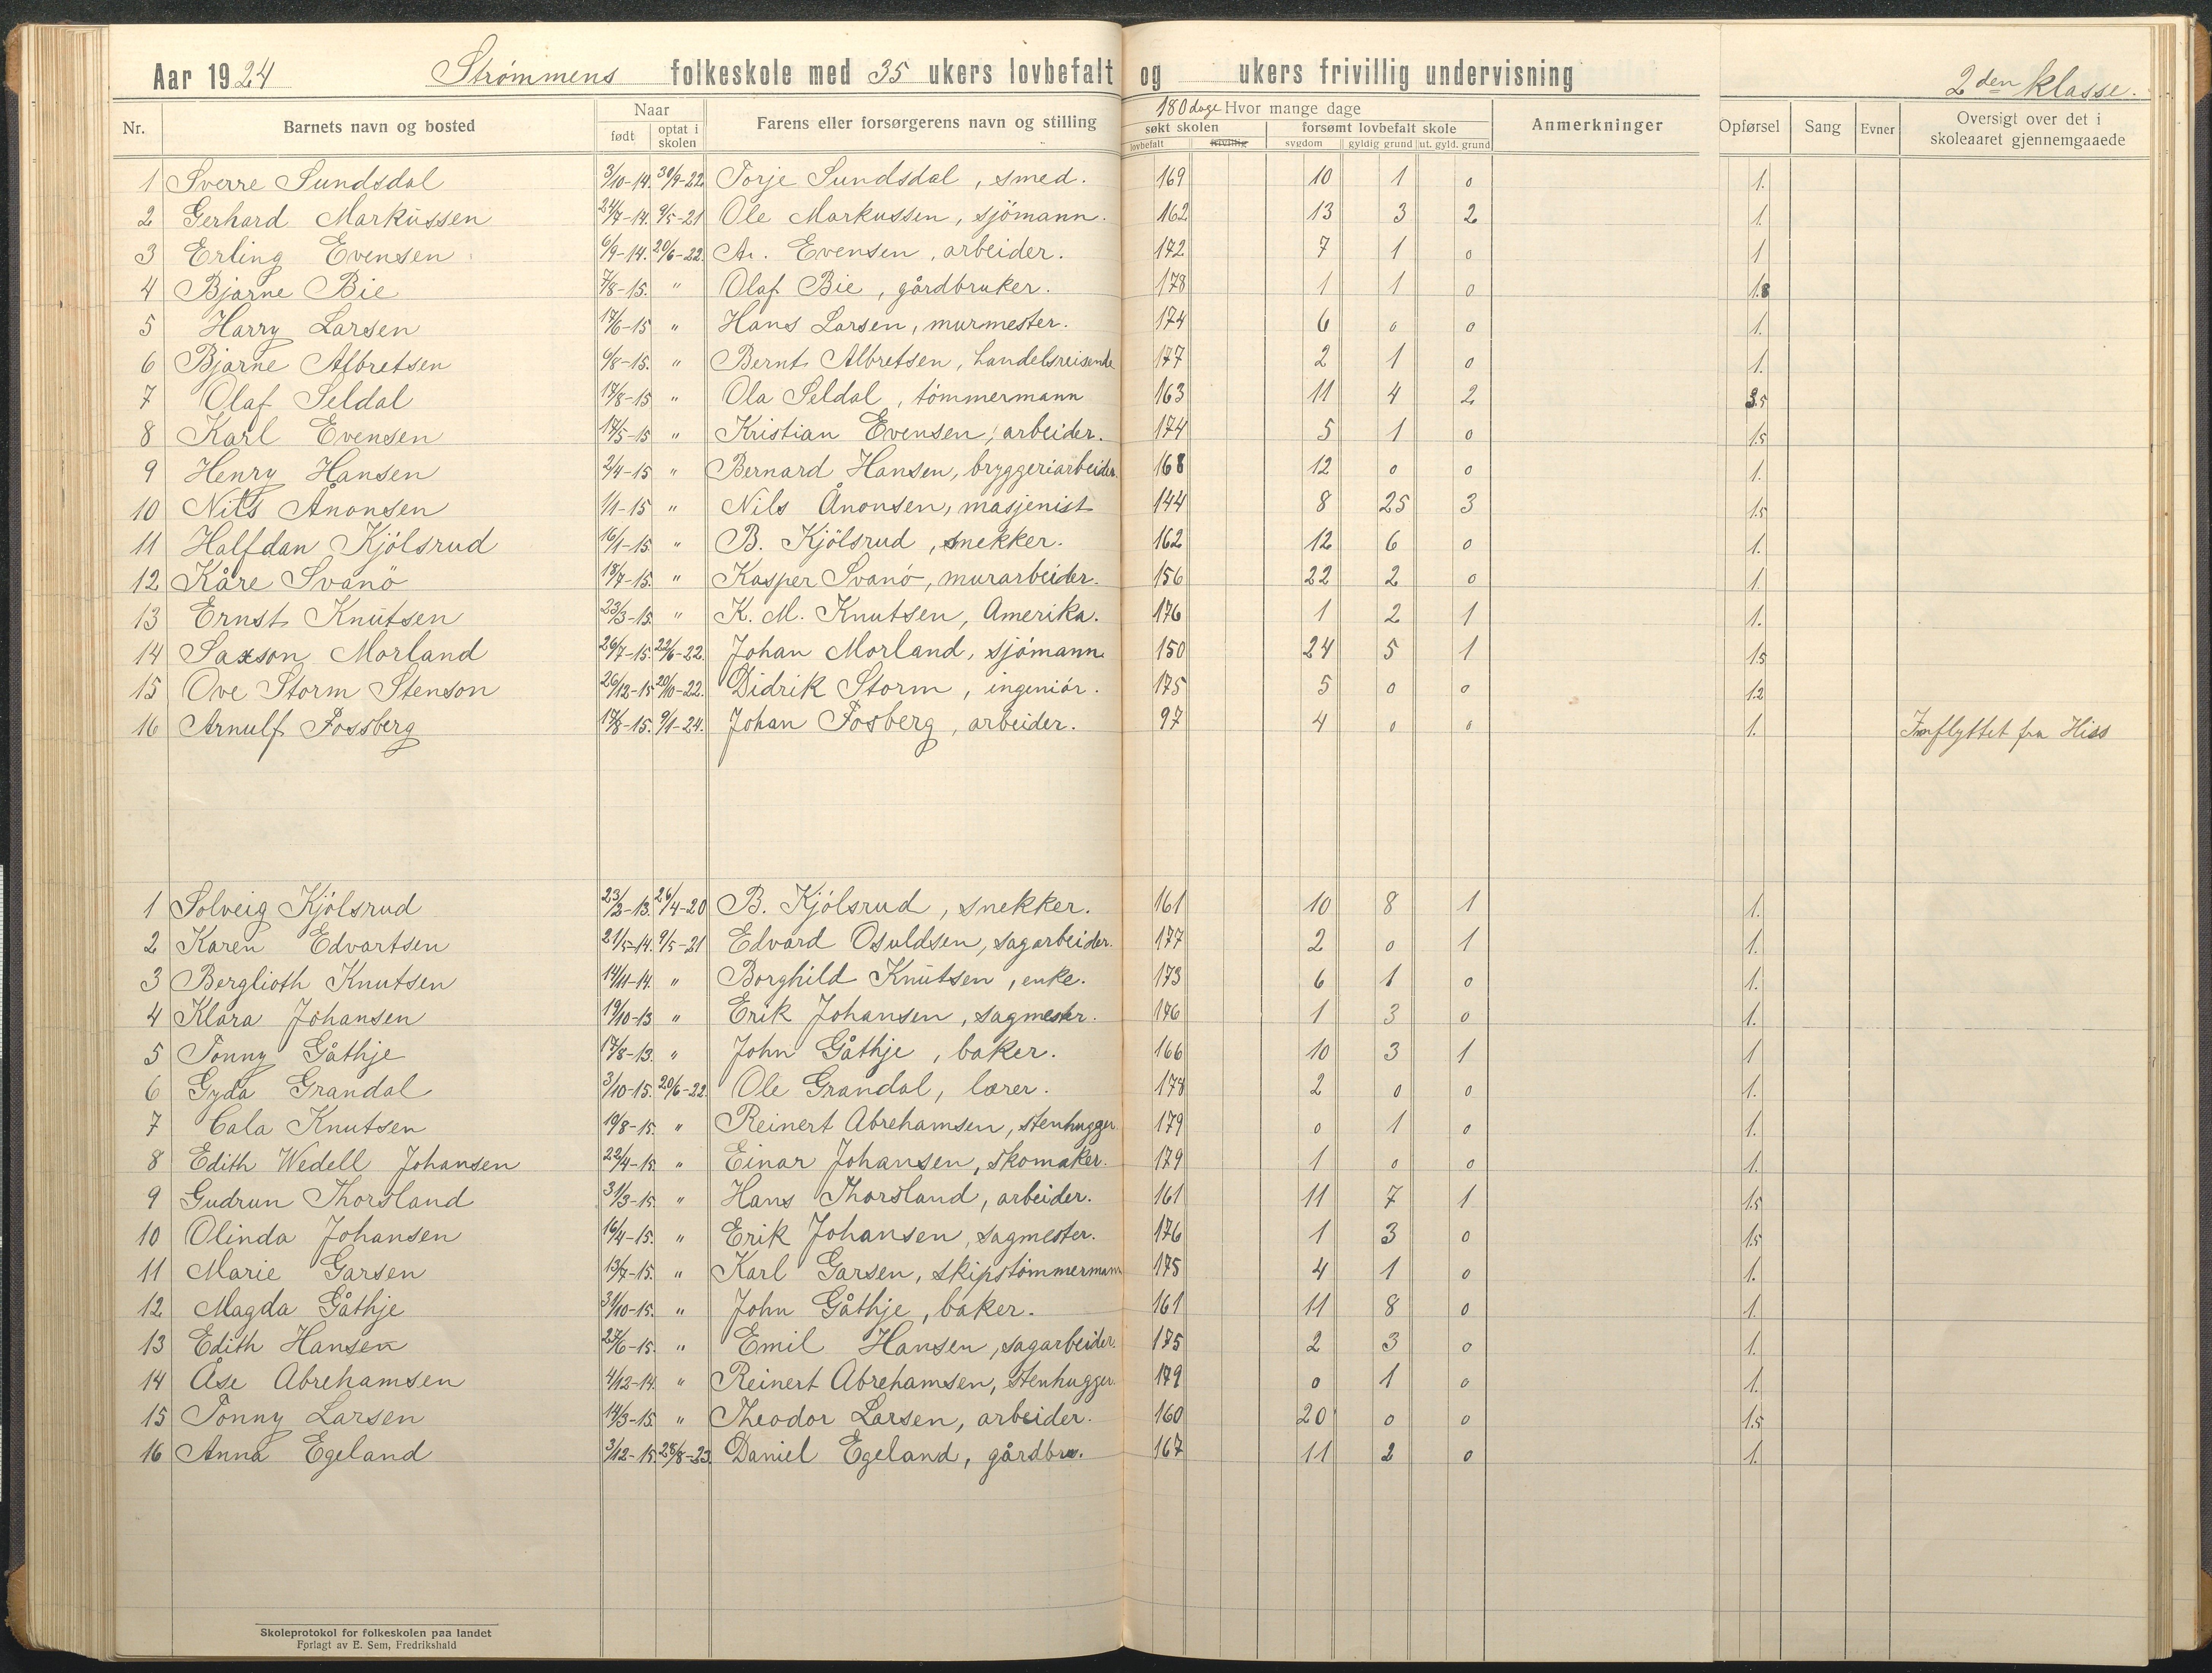 Aar 1924 Strømmens folkeskole med 35 ukers lovbefalt og ukers frivillig undervisning
2den klasse.
Nr. Barnets navn og bosted Naar født optat i skolen Farens eller forsørgerens navn og stilling 180 dage Hvor mange dage søkt skolen lovbefalt frivillig forsømt lovbefalt skole sygdom gyldig grund ut. gyld. grund Anmerkninger Opførsel Sang Evner Oversigt over det i skoleaaret gjennemgaaede
1 Sverre Sundsdal 3/10-14. 30/9-22 Torje Sundsdal, smed. 169 10 1 0 1.
2 Gerhard Markussen 24/7-14. 9/5-21 Ole Markussen, sjömann. 162 13 3 2 1.
3 Erling Evensen 6/9-14. 20/6-22. A. Evensen, arbeider. 172 7 1 0 1
4 Bjarne Bie 7/8-15. " Olaf Bie, gårdbruker. 178 1 1 0 1.8
5 Harry Larsen 17/6-15 " Hans Larsen, murmester. 174 6 0 0 1.
6 Bjarne Albretsen 6/8-15. " Bernt Albretsen, handelsreisende 177 2 1 0 1.
7 Olaf Seldal 17/8-15 " Ola Seldal, tömmermann 163 11 4 2 3.5
8 Karl Evensen 17/5-15 " Kristian Evensen, arbeider. 174 5 1 0 1.5
9 Henry Hansen 2/4-15 " Bernard Hansen, bryggeriarbeider. 168 12 0 0 1.
10 Nils Ånonsen 1/1-15 " Nils Ånonsen, masjenist 144 8 25 3 1.5
11 Halfdan Kjölsrud 16/1-15. " B. Kjölsrud, snekker. 162 12 6 0 1.
12 Kåre Svanö 18/7-15. " Kasper Svanö, murarbeider. 156 22 2 0 1.
13 Ernst Knutsen 23/3-15. " K. M. Knutsen, Amerika. 176 1 2 1 1.
14 Saxson Morland 26/7-15. 22/6-22. Johan Morland, sjömann. 150 24 5 1 1.5
15 Ove Storm Stenson 26/12-15 20/10-22. Didrik Storm, ingeniör. 175 5 0 0 1.2
16 Arnulf Fossberg 17/8-15. 9/1-24. Johan Fosberg, arbeider. 97 4 0 0 1. Innflyttet fra Hiss
1 Solveig Kjölsrud 23/2-13. 26/4-20 B. Kjölsrud, snekker. 161 10 8 1 1.
2 Karen Edvartsen 21/5-14. 9/5-21 Edvard Osuldsen, sagarbeider. 177 2 0 1 1.
3 Berglioth Knutsen 14/11-14. " Borghild Knutsen, enke. 173 6 1 0 1.
4 Klara Johansen 19/10-13 " Erik Johansen, sagmester. 176 1 3 0 1.
5 Tonny Gåthje 17/8-13. " John Gåthje, baker. 166 10 3 1 1
6 Gyda Grandal 3/10-15. 20/6-22. Ole Grandal, lærer. 178 2 0 0 1.
7 Cala Knutsen 19/8-15. " Reinert Abrehamsen, stenhugger. 179 0 1 0 1.
8 Edith Wedell Johansen 22/4-15. " Einar Johansen, skomaker. 179 1 0 0 1.
9 Gudrun Thorsland 31/3-15. " Hans Thorsland, arbeider. 161 11 7 1 1.5
10 Olinda Johansen 16/4-15. " Erik Johansen, sagmester. 176 1 3 0 1.5
11 Marie Garsen 13/7-15. " Karl Garsen, skipstömmermann 175 4 1 0 1.
12 Magda Gåthje 31/10-15. " John Gåthje, baker. 161 11 8 0 1.
13 Edith Hansen 27/6-15. " Emil Hansen, sagarbeider. 175 2 3 0 1.
14 Åse Abrehamsen 4/12-14. " Reinert Abrehamsen, stenhugger. 179 0 1 0 1.
15 Tonny Larsen 14/3-15. " Theodor Larsen, arbeider. 160 20 0 0 1.5
16 Anna Egeland 3/12-15. 28/8-23. Daniel Egeland, gårdbru. 167 11 2 0 1.
Skoleprotokol for folkeskolen paa landet
Forlagt av E. Sem, Fredrikshald